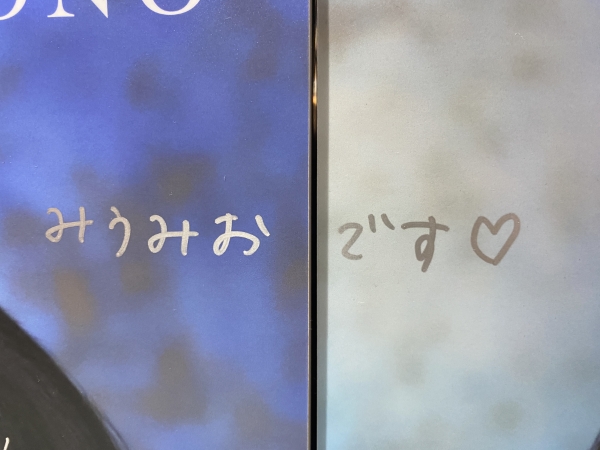 UNO
みうみお です♡